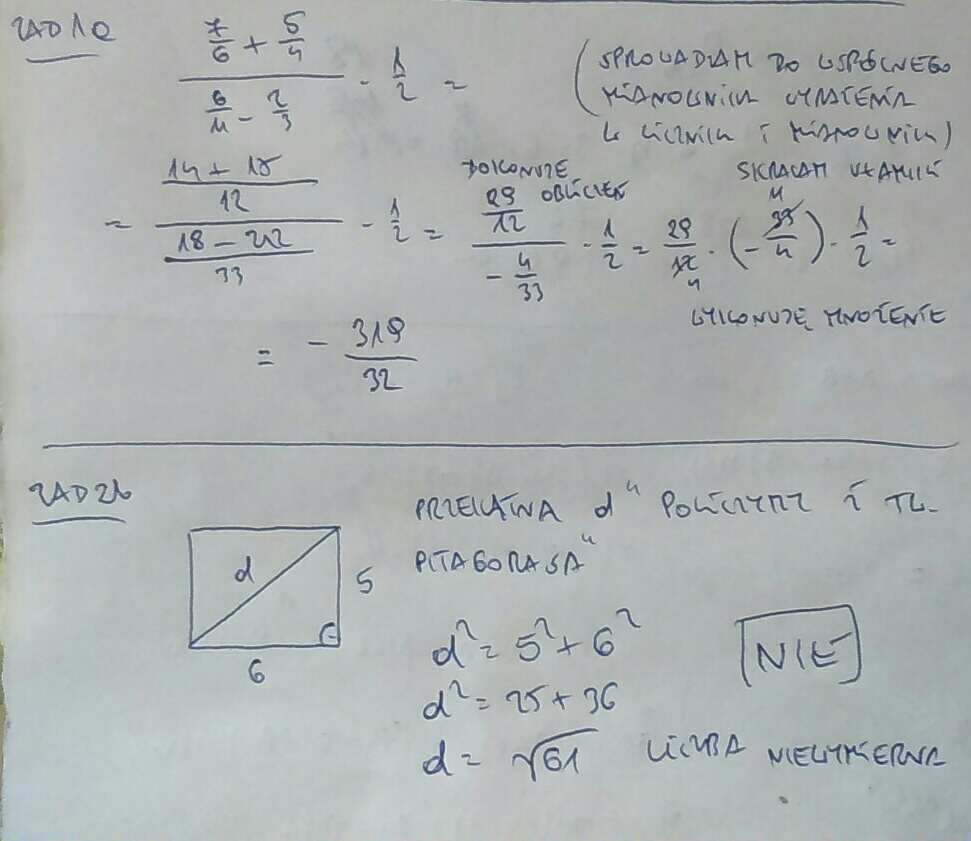 ZAD 1a
(7/6 + 5/4) / (6/11 - 2/3) · 1/2 =
(SPROWADZAM DO WSPÓLNEGO
MIANOWNIKA WYRAŻENIA
W LICZNIKU I MIANOWNIKU)
= ((14 + 15)/12) / ((18 - 22)/33) · 1/2 = (29/12) / (-4/33) · 1/2 = 29/12 · (-33/4) · 1/2 =
DOKONUJĘ
OBLICZEŃ
SKRACAM UŁAMKI
11
4
WYKONUJĘ MNOŻENIE
= - 319/32
ZAD 2b
d
5
6
PRZEKĄTNA d " POLICZYMY Z TW.
PITAGORASA"
d² = 5² + 6²
NIE
d² = 25 + 36
d = √61 LICZBA NIEWYMIERNA